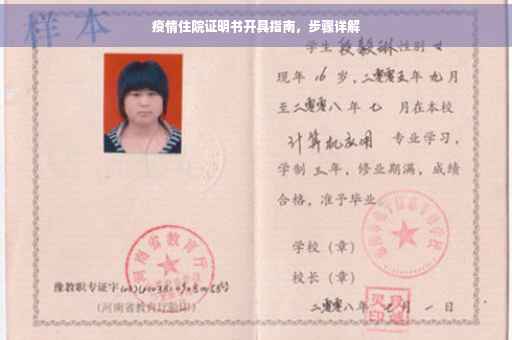 疫情住院证明书开具指南，步骤详解
样本
学生 段毅琳 性别 女
现年 16 岁，二零零五年 九 月
至二零零八 年 七 月在本校
计算机应用 专业学习，
学制 三 年，修业期满，成绩
合格，准予毕业。
学校（章）
校长（章）
二零零八年 七 月 一 日
河南省教育厅
豫教职专证字
（河南省教育厅验印）